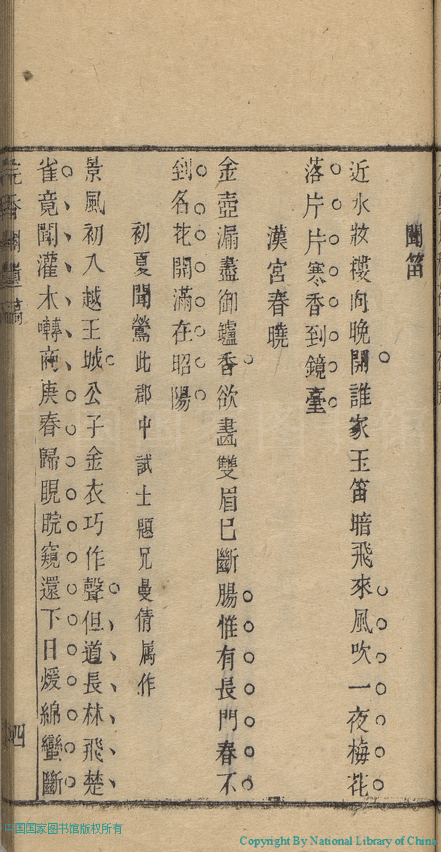 聞笛
近水妝樓向晚開誰家玉笛暗飛來風吹一夜梅花
落片片寒香到鏡臺
漢宮春曉
金壺漏盡御鑪香欲畫雙眉已斷腸惟有長門春不
到名花開滿在昭陽
初夏聞鶯此郡中試士題兄曼倩属作
景風初入越王城公子金衣巧作聲但道長林飛楚
雀竟聞灌木囀商庚春歸睍睆窺還下日煖綿蠻斷
四
中国国家图书馆版权所有
Copyright By National Library of China